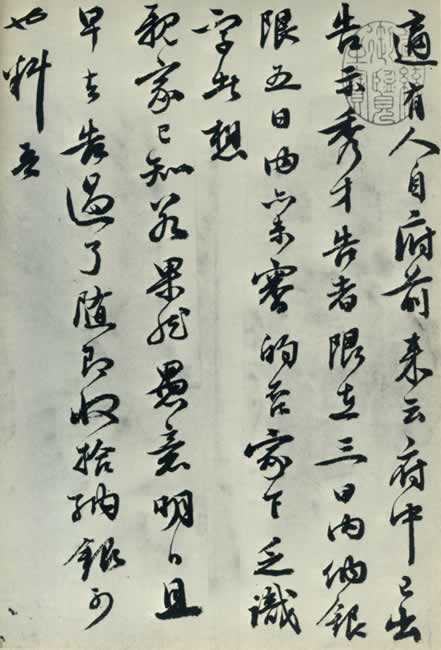 適有人自府前來云府中已出
告示秀才告者限在三日內納銀
限五日內亦未審的否家下乏識
字者想
親家已知若果然愚意明日且
早去告過了隨即收拾納銀可
也料吾